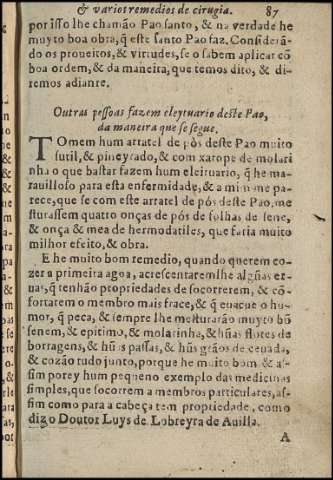 & varios remedios de cirugia. 87
por isso lhe chamão Pao santo, & na verdade he
muyto boa obra, q̃ este santo Pao faz. Considerã-
do os proueitos, & virtudes, se o sabem aplicar cõ
boa ordem, & da maneira, que temos dito, & di-
remos adiante.
Outras pessoas fazem eleytuario deste Pao,
da maneira que se segue.
TOmem hum arratel de pòs deste Pao muito
sutil, & pineyrado, & com xarope de molari
nha o que bastar fazem hum eleituario, q̃ he ma-
rauilloso para esta enfermidade, & a mim me pa-
rece, que se com este arratel de pòs deste Pao, me
sturassem quatro onças de pós de folhas de sene,
& onça & mea de hermodatiles, que faria muito
milhor efeito, & obra.
E he muito bom remedio, quando querem co-
zer a primeira agoa, acrescentaremlhe algũas er-
uas, q̃ tenhão propriedades de socorrerem, & cõ-
fortarem o membro mais frace, & q̃ euacue o hu-
mor, q̃ peca, & sempre lhe mesturarão muyto bõ
senem, & epitimo, & molarinha, & hũas flores de
borragens, & hũs passas, & hũs grãos de ceuada,
& cozão tudo junto, porque he muito bom & as-
sim porey hum pequeno exemplo das medicinas
simples, que socorrem a membros particulares, as-
sim como para a cabeça tem propriedade, como
diz o Doutor Luys de Lobreyra de Auilla.
A